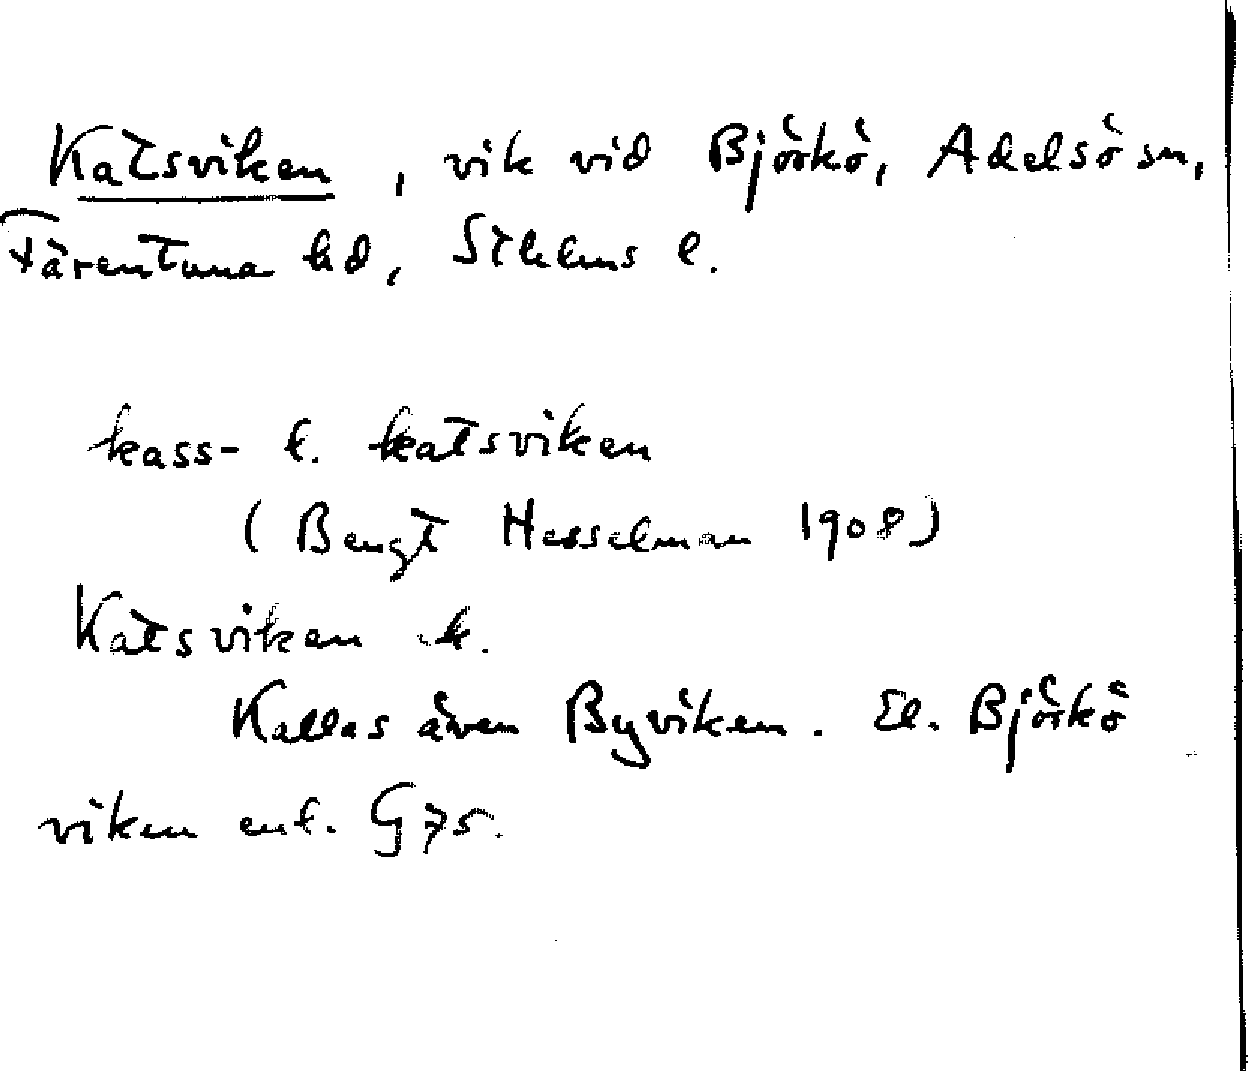 Katsviken, vik vid Björkö, Adelsö sn,
Färentuna hd, Sthlms l.
kass- l. katsviken
(Bengt Hesselman 1908)
Katsviken
Kallas även Byviken. El. Björkö
viken enl. G 75.